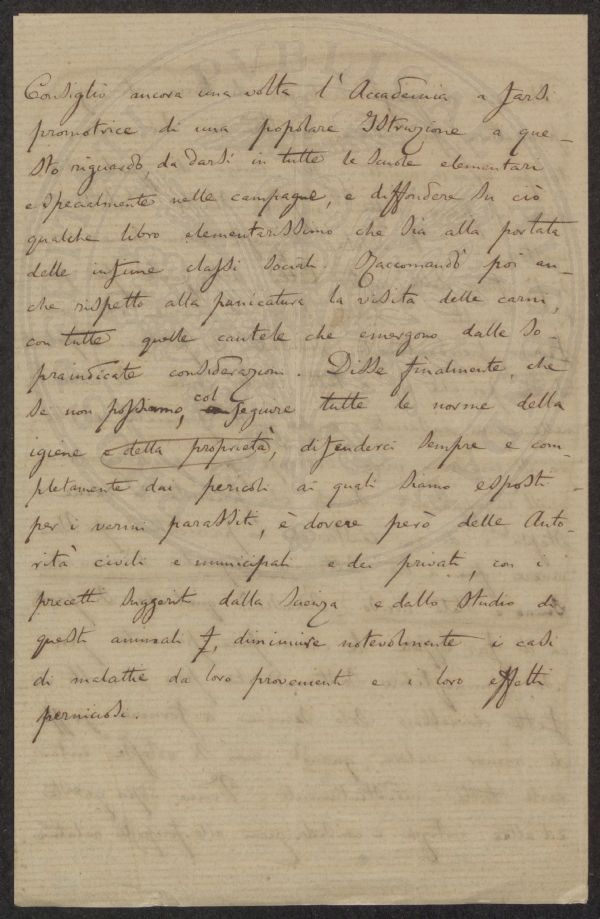 Consigliò ancora una volta l'Accademia a farsi
promotrice di una popolare Istruzione a que-
sto riguardo, da darsi in tutte le scuole elementari
e specialmente nelle campagne, e diffondere su ciò
qualche libro elementarissimo che sia alla portata
delle infime classi sociali. Raccomandò poi an-
che rispetto alla panicatura la visita delle carni,
con tutte quelle cautele che emergono dalle so-
praindicate considerazioni. Disse finalmente, che
se non possiamo, col seguire tutte le norme della
igiene e della proprietà, difenderci sempre e com-
pletamente dai pericoli ai quali siamo esposti
per i vermi parassiti, è dovere però delle Auto-
rità civili e municipali e dei privati, con i
precetti suggeriti dalla scienza e dallo studio di
questi animali, diminuire notevolmente i casi
di malattie da loro provenienti e i loro effetti
perniciosi.